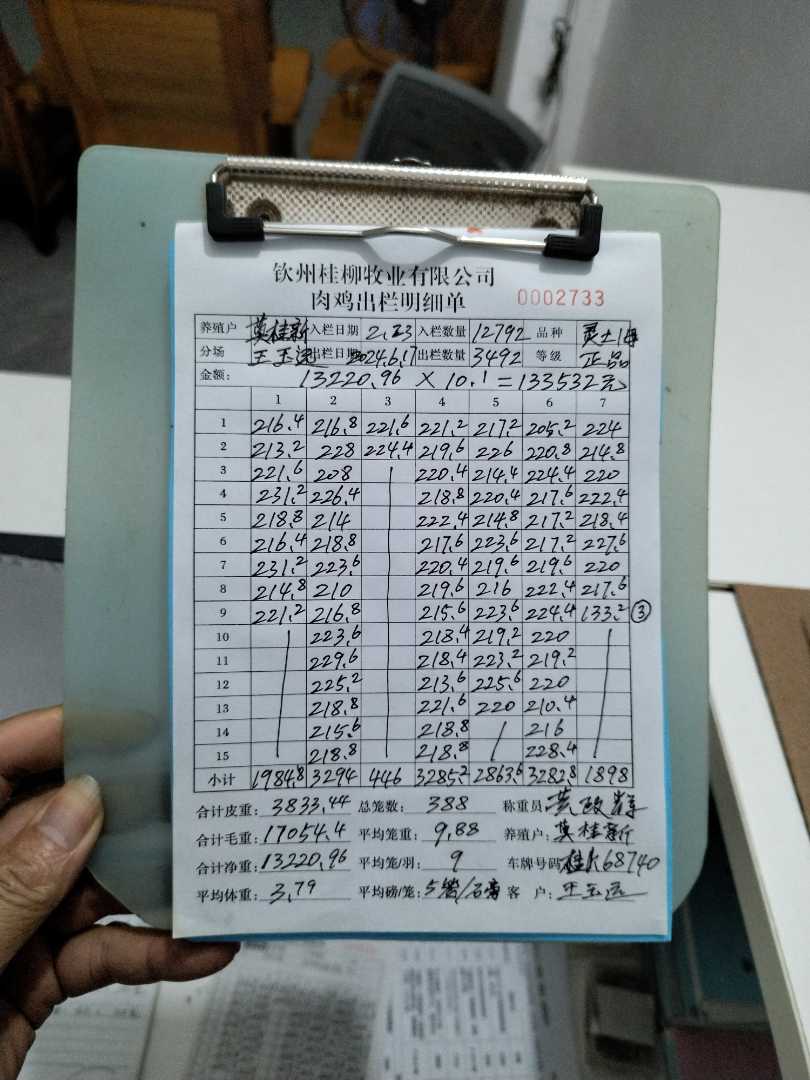 钦州桂柳牧业有限公司
肉鸡出栏明细单 0002733
养殖户 莫桂新 入栏日期 2.23 入栏数量 12792 品种 灵土1母
分场 王玉远 出栏日期 2024.6.17 出栏数量 3492 等级 正品
金额: 13220.96 × 10.1 = 133532元
1 2 3 4 5 6 7
1 216.4 216.8 221.6 221.2 217.2 205.2 224
2 213.2 228 224.4 219.6 226 220.8 214.8
3 221.6 208 220.4 214.4 224.4 220
4 231.2 226.4 218.8 220.4 217.6 222.4
5 218.8 214 222.4 214.8 217.2 218.4
6 216.4 218.8 217.6 223.6 217.2 227.6
7 231.2 223.6 220.4 219.6 219.6 220
8 214.8 210 219.6 216 222.4 217.6
9 221.2 216.8 215.6 223.6 224.4 133.2 ③
10 223.6 218.4 219.2 220
11 229.6 218.4 223.2 219.2
12 225.2 213.6 225.6 220
13 218.8 221.6 220 210.4
14 215.6 218.8 216
15 218.8 218.8 228.4
小计 1984.8 3294 446 3285.2 2863.6 3282.8 1898
合计皮重: 3833.44 总笼数: 388 称重员:
合计毛重: 17054.4 平均笼重: 9.88 养殖户: 莫桂新
合计净重: 13220.96 平均笼/羽: 9 车牌号码 68740
平均体重: 3.79 平均磅/笼: 5笼/ 客 户: 王玉远